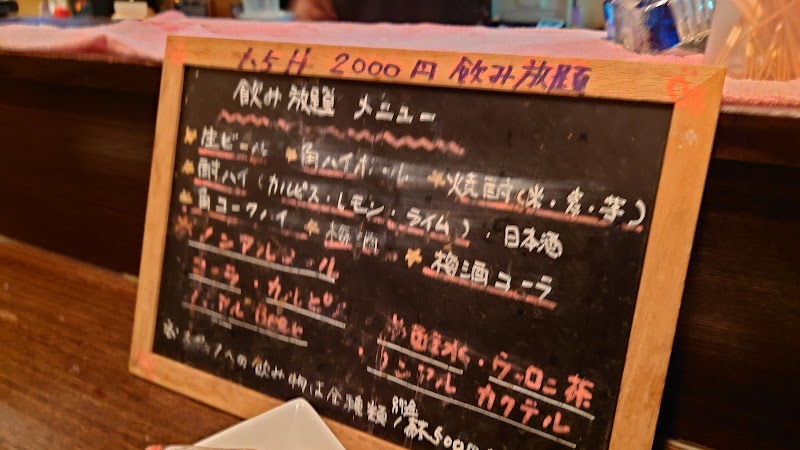 2000円 飲み放題
飲み放題 メニュー
生ビール 角ハイボール 焼酎(米・麦・芋)
酎ハイ(カルピス・レモン・ライム)・日本酒
角コークハイ 梅酒 梅酒コーラ
ノンアルコール
コーラ・カルピス
ノンアル Beer
炭酸水・ウーロン茶
・ノンアル カクテル
スタッフへの飲み物は全種類 別途 1杯500円